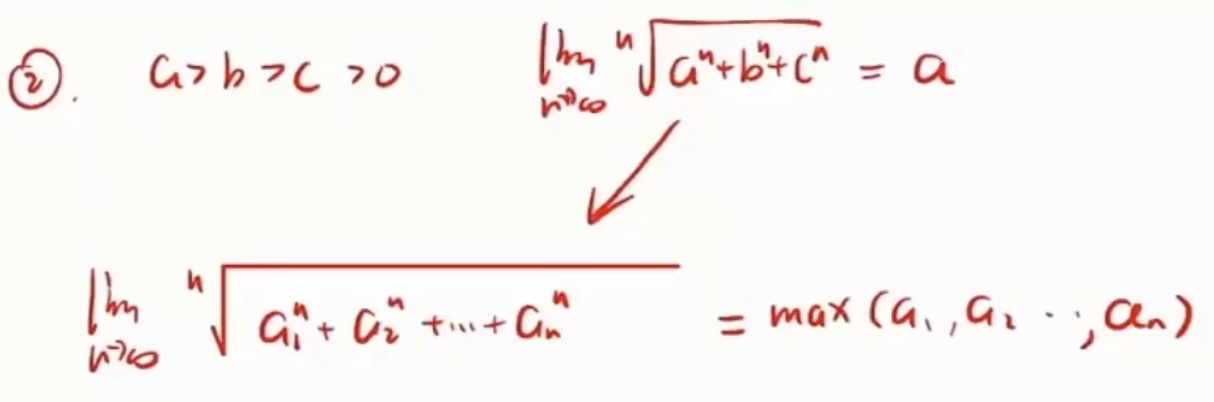 ②. a>b>c>0 lim n→∞ ⁿ√(aⁿ+bⁿ+cⁿ) = a
lim n→∞ ⁿ√(a₁ⁿ+a₂ⁿ+⋯+aₙⁿ) = max(a₁,a₂⋯,aₙ)